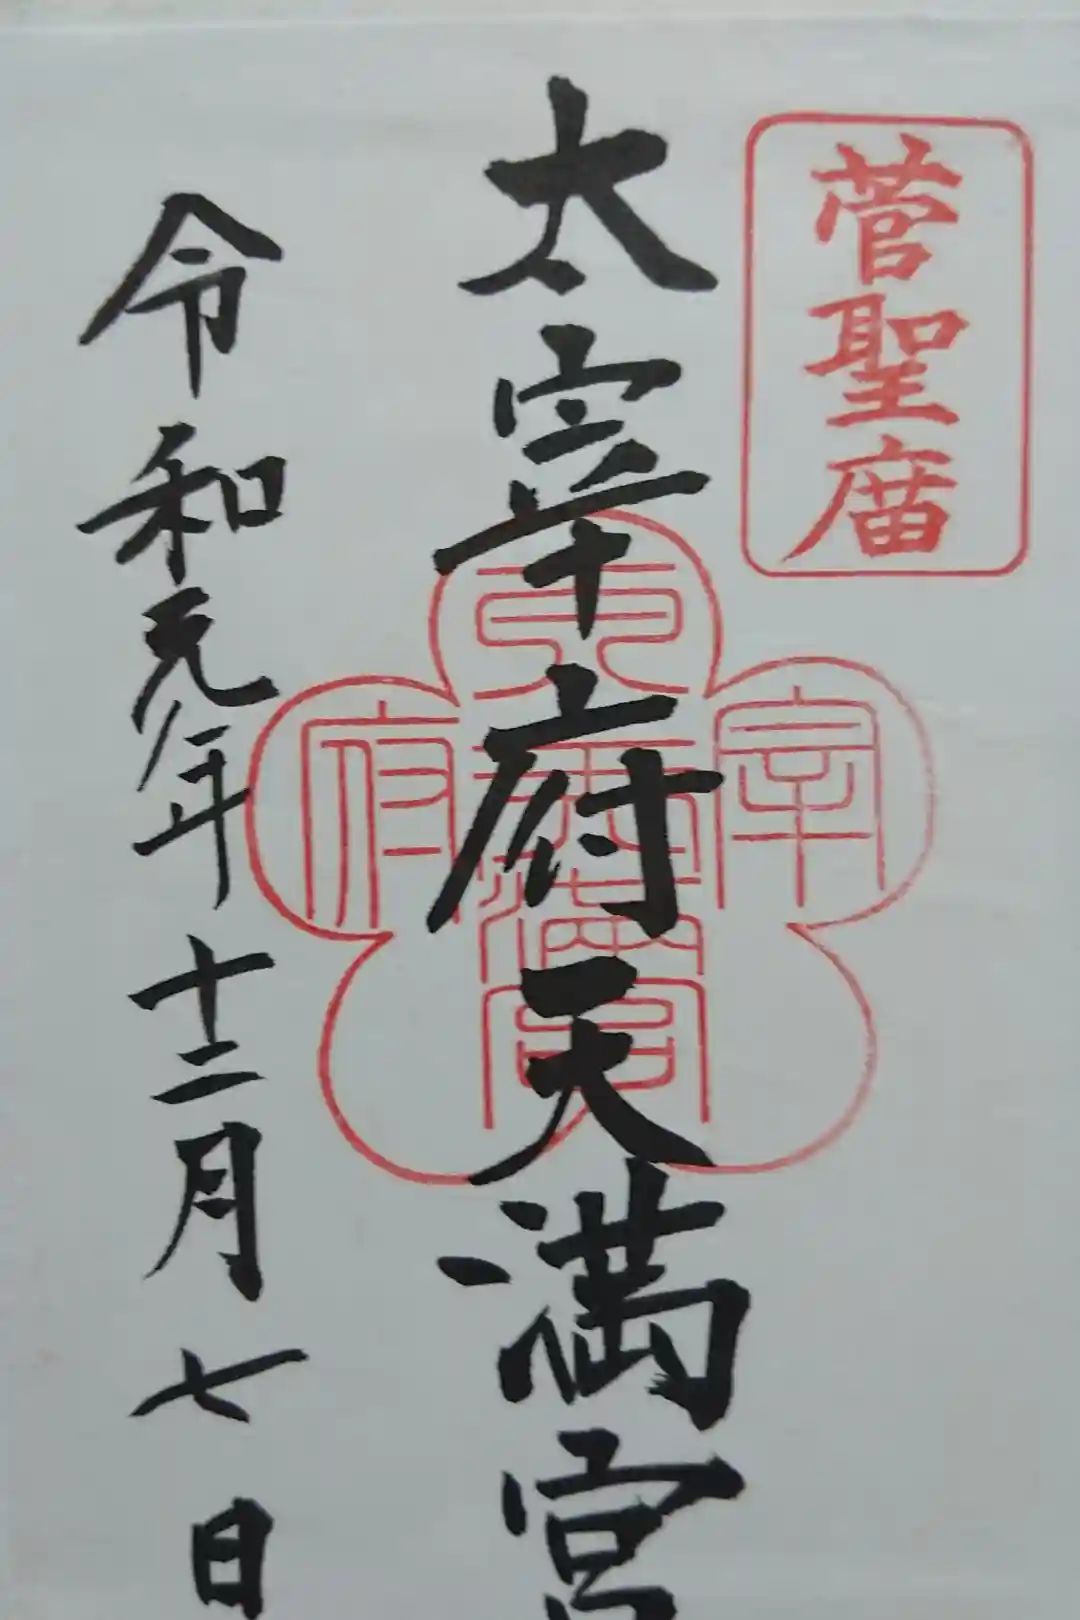 菅聖庿
太宰府天満宮
令和元年十二月七日
太
宰
府
天満宮